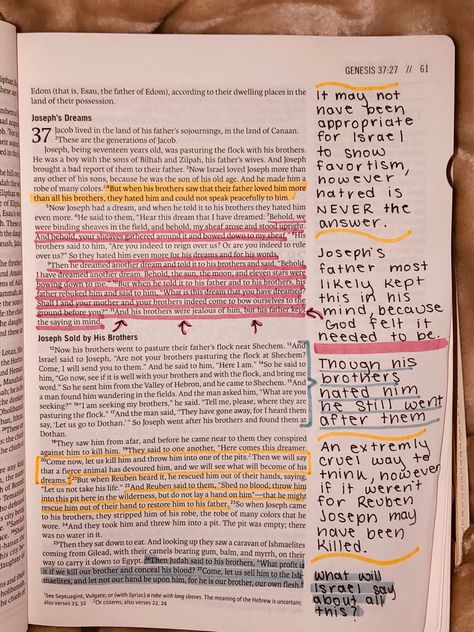 GENESIS 37:27 61
Edom (that is, Esau, the father of Edom), according to their dwelling places in the
land of their possession.
Joseph's Dreams
37 Jacob lived in the land of his father's sojournings, in the land of Canaan.
2These are the generations of Jacob.
Joseph, being seventeen years old, was pasturing the flock with his brothers.
He was a boy with the sons of Bilhah and Zilpah, his father's wives. And Joseph
brought a bad report of them to their father. 3Now Israel loved Joseph more than
any other of his sons, because he was the son of his old age. And he made him a
robe of many colors.1 4But when his brothers saw that their father loved him more
than all his brothers, they hated him and could not speak peacefully to him.
5Now Joseph had a dream, and when he told it to his brothers they hated him
even more. 6He said to them, "Hear this dream that I have dreamed: 7Behold, we
were binding sheaves in the field, and behold, my sheaf arose and stood upright.
And behold, your sheaves gathered around it and bowed down to my sheaf." 8His
brothers said to him, "Are you indeed to reign over us? Or are you indeed to rule
over us?" So they hated him even more for his dreams and for his words.
9Then he dreamed another dream and told it to his brothers and said, "Behold,
I have dreamed another dream. Behold, the sun, the moon, and eleven stars were
bowing down to me." 10But when he told it to his father and to his brothers, his
father rebuked him and said to him, "What is this dream that you have dreamed?
Shall I and your mother and your brothers indeed come to bow ourselves to the
ground before you?" 11And his brothers were jealous of him, but his father kept
the saying in mind.
Joseph Sold by His Brothers
12Now his brothers went to pasture their father's flock near Shechem. 13And
Israel said to Joseph, "Are not your brothers pasturing the flock at Shechem?
Come, I will send you to them." And he said to him, "Here I am." 14So he said to
him, "Go now, see if it is well with your brothers and with the flock, and bring me
word." So he sent him from the Valley of Hebron, and he came to Shechem. 15And
a man found him wandering in the fields. And the man asked him, "What are you
seeking?" 16"I am seeking my brothers," he said. "Tell me, please, where they are
pasturing the flock." 17And the man said, "They have gone away, for I heard them
say, 'Let us go to Dothan.'" So Joseph went after his brothers and found them at
Dothan.
18They saw him from afar, and before he came near to them they conspired
against him to kill him. 19They said to one another, "Here comes this dreamer.
20Come now, let us kill him and throw him into one of the pits. Then we will say
that a fierce animal has devoured him, and we will see what will become of his
dreams." 21But when Reuben heard it, he rescued him out of their hands, saying,
"Let us not take his life." 22And Reuben said to them, "Shed no blood; throw him
into this pit here in the wilderness, but do not lay a hand on him"—that he might
rescue him out of their hand to restore him to his father. 23So when Joseph came
to his brothers, they stripped him of his robe, the robe of many colors that he
wore. 24And they took him and threw him into a pit. The pit was empty; there
was no water in it.
25Then they sat down to eat. And looking up they saw a caravan of Ishmaelites
coming from Gilead, with their camels bearing gum, balm, and myrrh, on their
way to carry it down to Egypt. 26Then Judah said to his brothers, "What profit is
it if we kill our brother and conceal his blood? 27Come, let us sell him to the Ish-
maelites, and let not our hand be upon him, for he is our brother, our own flesh."
1See Septuagint, Vulgate; or (with Syriac) a robe with long sleeves. The meaning of the Hebrew is uncertain;
also verses 23, 32 2Or cisterns; also verses 22, 24
It may not
have been
appropriate
for Israel
to show
favortism,
however
hatred is
NEVER the
answer.
Joseph's
father most
likely kept
this in his
mind, because
God felt it
needed to be.
Though his
brothers
hated him
he still went
after them
An extremly
cruel way to
think, however
if it weren't
for Reuben
Joseph may
have been
Killed.
what will
Israel say
about all
this?